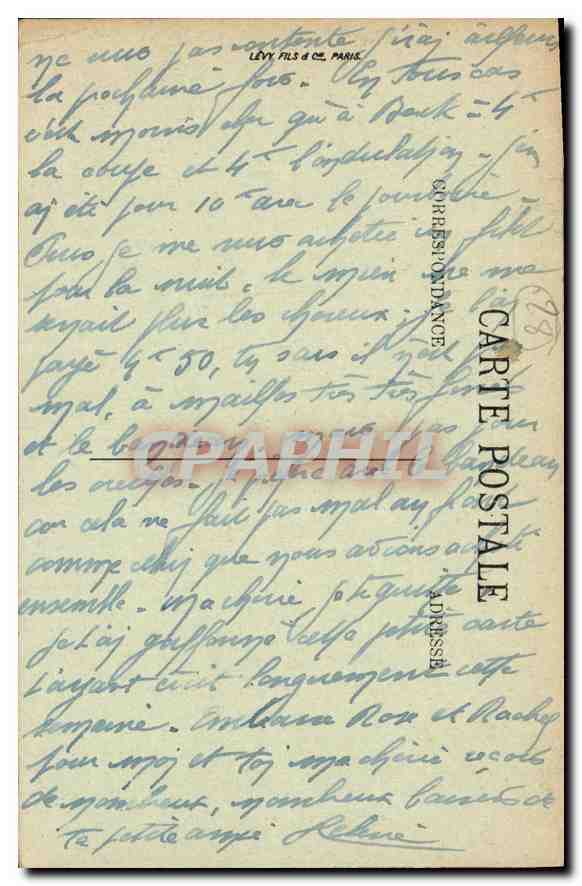 ne suis pas contente j'irai ailleurs
LÉVY FILS & Cie PARIS.
la prochaine fois. En tous cas
c'est moins cher qu'à Berck = 4f
la coupe et 4f l'ondulation - j'en
ai été pour 10f avec le pourboire -
Puis je me suis achetée un filet
pour la nuit - le mien ne me
tenait plus les cheveux. Je l'ai
payé 4f 50, tu sais il n'est pas
mal, à mailles très très fines
et le pas pour
les oreilles. bandeau
car cela ne fait pas mal au front
comme celui que nous avions acheté
ensemble. Ma chérie je te quitte
je t'ai griffonné cette petite carte
t'ayant écrit longuement cette
semaine. Embrasse Rose et Rachel
pour moi et toi ma chérie reçois
de nombreux, nombreux baisers de
ta petite amie Helene
CORRESPONDANCE
CARTE POSTALE
ADRESSE
28
CPAPHIL